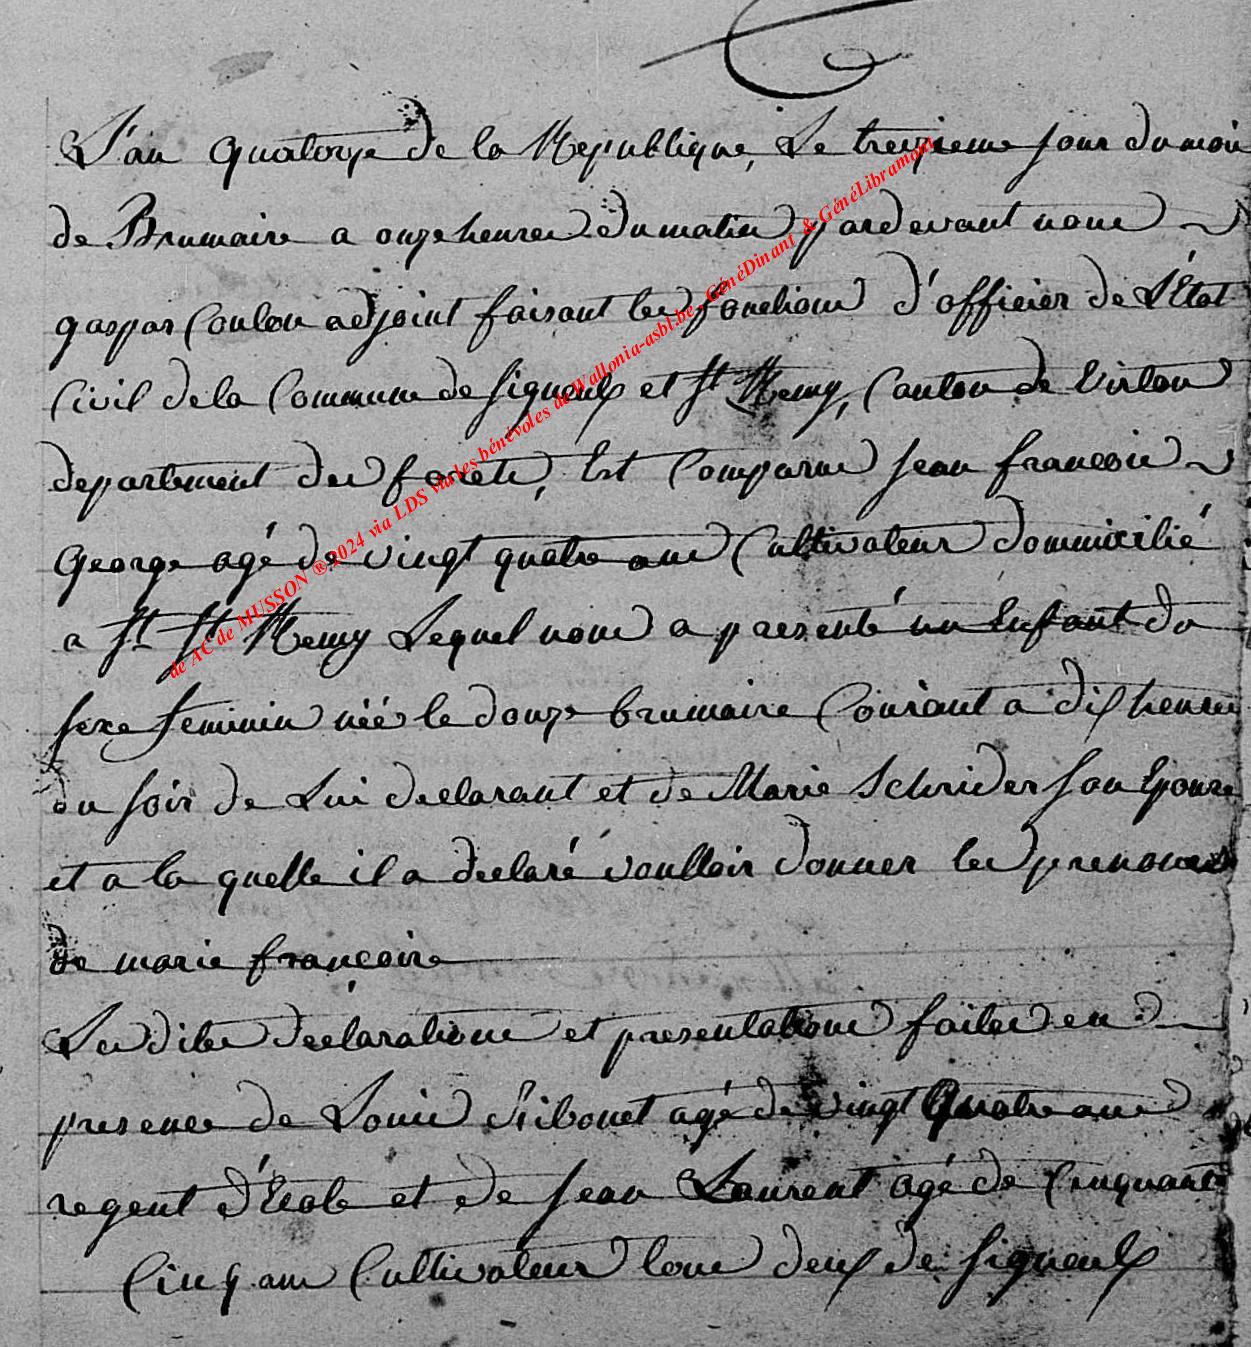 L'an quatorze de la Republique, Le treizieme jour du mois
de Brumaire a onze heures du matin pardevant nous
gaspar Coulon adjoint faisant les fonctions d'officier de L'Etat
Civil de la Commune de Signeulx et St Remy, Canton de Virton
departement des forets, Est Comparu jean francois
George agé de vingt quatre ans Cultivateur dommicilié
a St St Remy Lequel nous a presenté un Enfant du
sexe feminin néé le douze brumaire Courant a dix heures
du soir de Lui declarant et de Marie Schrider son Epouse
et a la quelle il a declaré voulloir donner les prenoms
de marie francoise
Les dites declarations et presentations faites en
presence de Louis Ribonet agé de vingt Quatre ans
regent d'Ecole et de jean Laurent agé de Cinquante
Cinq ans Cultivateur tous deux de Signeulx
de AC de MUSSON ® 2024 via LDS via les bénévoles de Wallonia-asbl.be GénéDinant & GénéLibramont